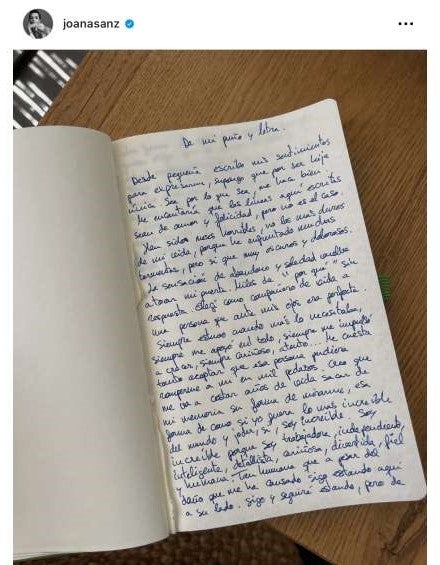 joanasanz
De mi puño y letra.
Desde pequeña escribo mis sentimientos
para expresarme, supongo que por ser hija
única. Sea por lo que sea, me hace bien.
Me encantaría que las líneas aquí escritas
sean de amor y felicidad, pero no es el caso.
Han sido meses horribles, no los más duros
de mi vida, porque he enfrentado muchas
tormentas, pero sí que muy oscuros y dolorosos.
La sensación de abandono y soledad vuelve
a tocar mi puerta. Miles de "por qué" sin
respuesta. Elegí como compañero de vida a
una persona que ante mis ojos era perfecta.
Siempre estuvo cuando más lo necesitaba,
siempre me apoyó en todo, siempre me impulsó
a crecer, siempre cariñoso, atento... Me cuesta
tanto aceptar que esa persona pudiera
romperme a mí en mil pedazos. Creo que
me va a costar años de vida sacar de
mi memoria su forma de mirarme, esa
forma de como si yo fuera lo más increíble
del mundo y joder, sí, soy increíble. Soy
increíble porque soy trabajadora, independiente,
inteligente, detallista, cariñosa, divertida, fiel
y humana. Tan humana que a pesar del
daño que me ha causado sigo estando aquí
a su lado. Sigo y seguiré estando, pero de